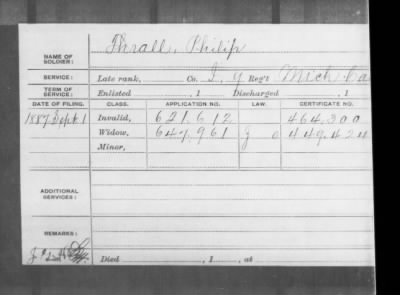 NAME OF SOLDIER: Thrall, Philip
SERVICE: Late rank, Co. I, 9 Reg't Mich Ca
TERM OF SERVICE: Enlisted , 1 Discharged , 1
DATE OF FILING. CLASS. APPLICATION NO. LAW. CERTIFICATE NO.
1887 Sept 1 Invalid, 621,612 464,300
Widow, 647,961 449,424
Minor,
ADDITIONAL SERVICES:
REMARKS:
Died , 1 , at